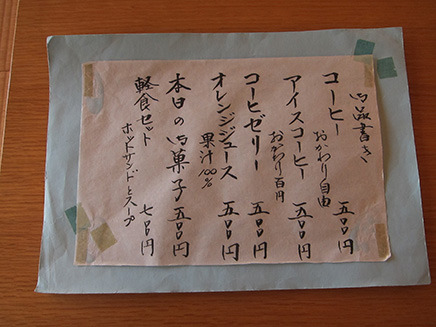 御品書き
コーヒー 五〇〇円
おかわり自由
アイスコーヒー 五〇〇円
おかわり百円
コーヒゼリー 五〇〇円
オレンジジュース 五〇〇円
果汁100%
本日の御菓子 五〇〇円
軽食セット 七〇〇円
ホットサンドとスープ